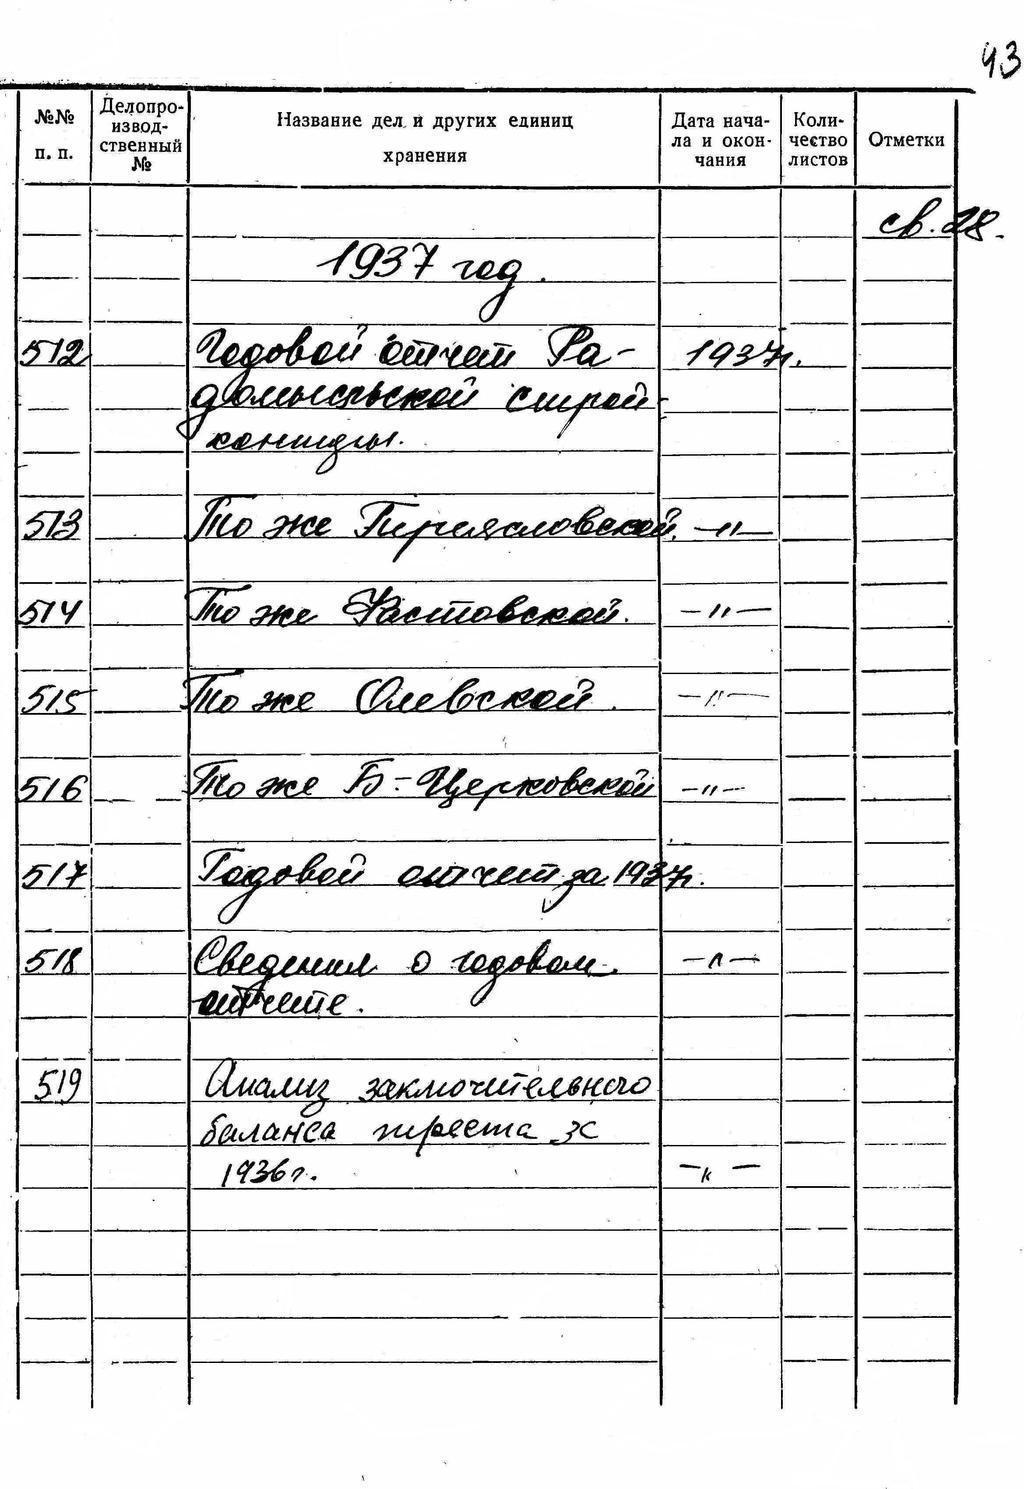 43
№№ п. п.
Делопро-
извод-
ственный
№
Название дел и других единиц
хранения
Дата нача-
ла и окон-
чания
Коли-
чество
листов
Отметки
св. 28.
1937 год.
512 Годовой отчет Ра- 1937г.
домысльской строй-
конторы.
513 То же Переясловской. —"—
514 То же Фастовской. —"—
515 То же Олевской. —"—
516 То же Б-Церковской —"—
517 Годовой отчет за 1937г.
518 Сведения о годовом —"—
отчете.
519 Анализ заключительного
баланса треста за
1936г. —"—